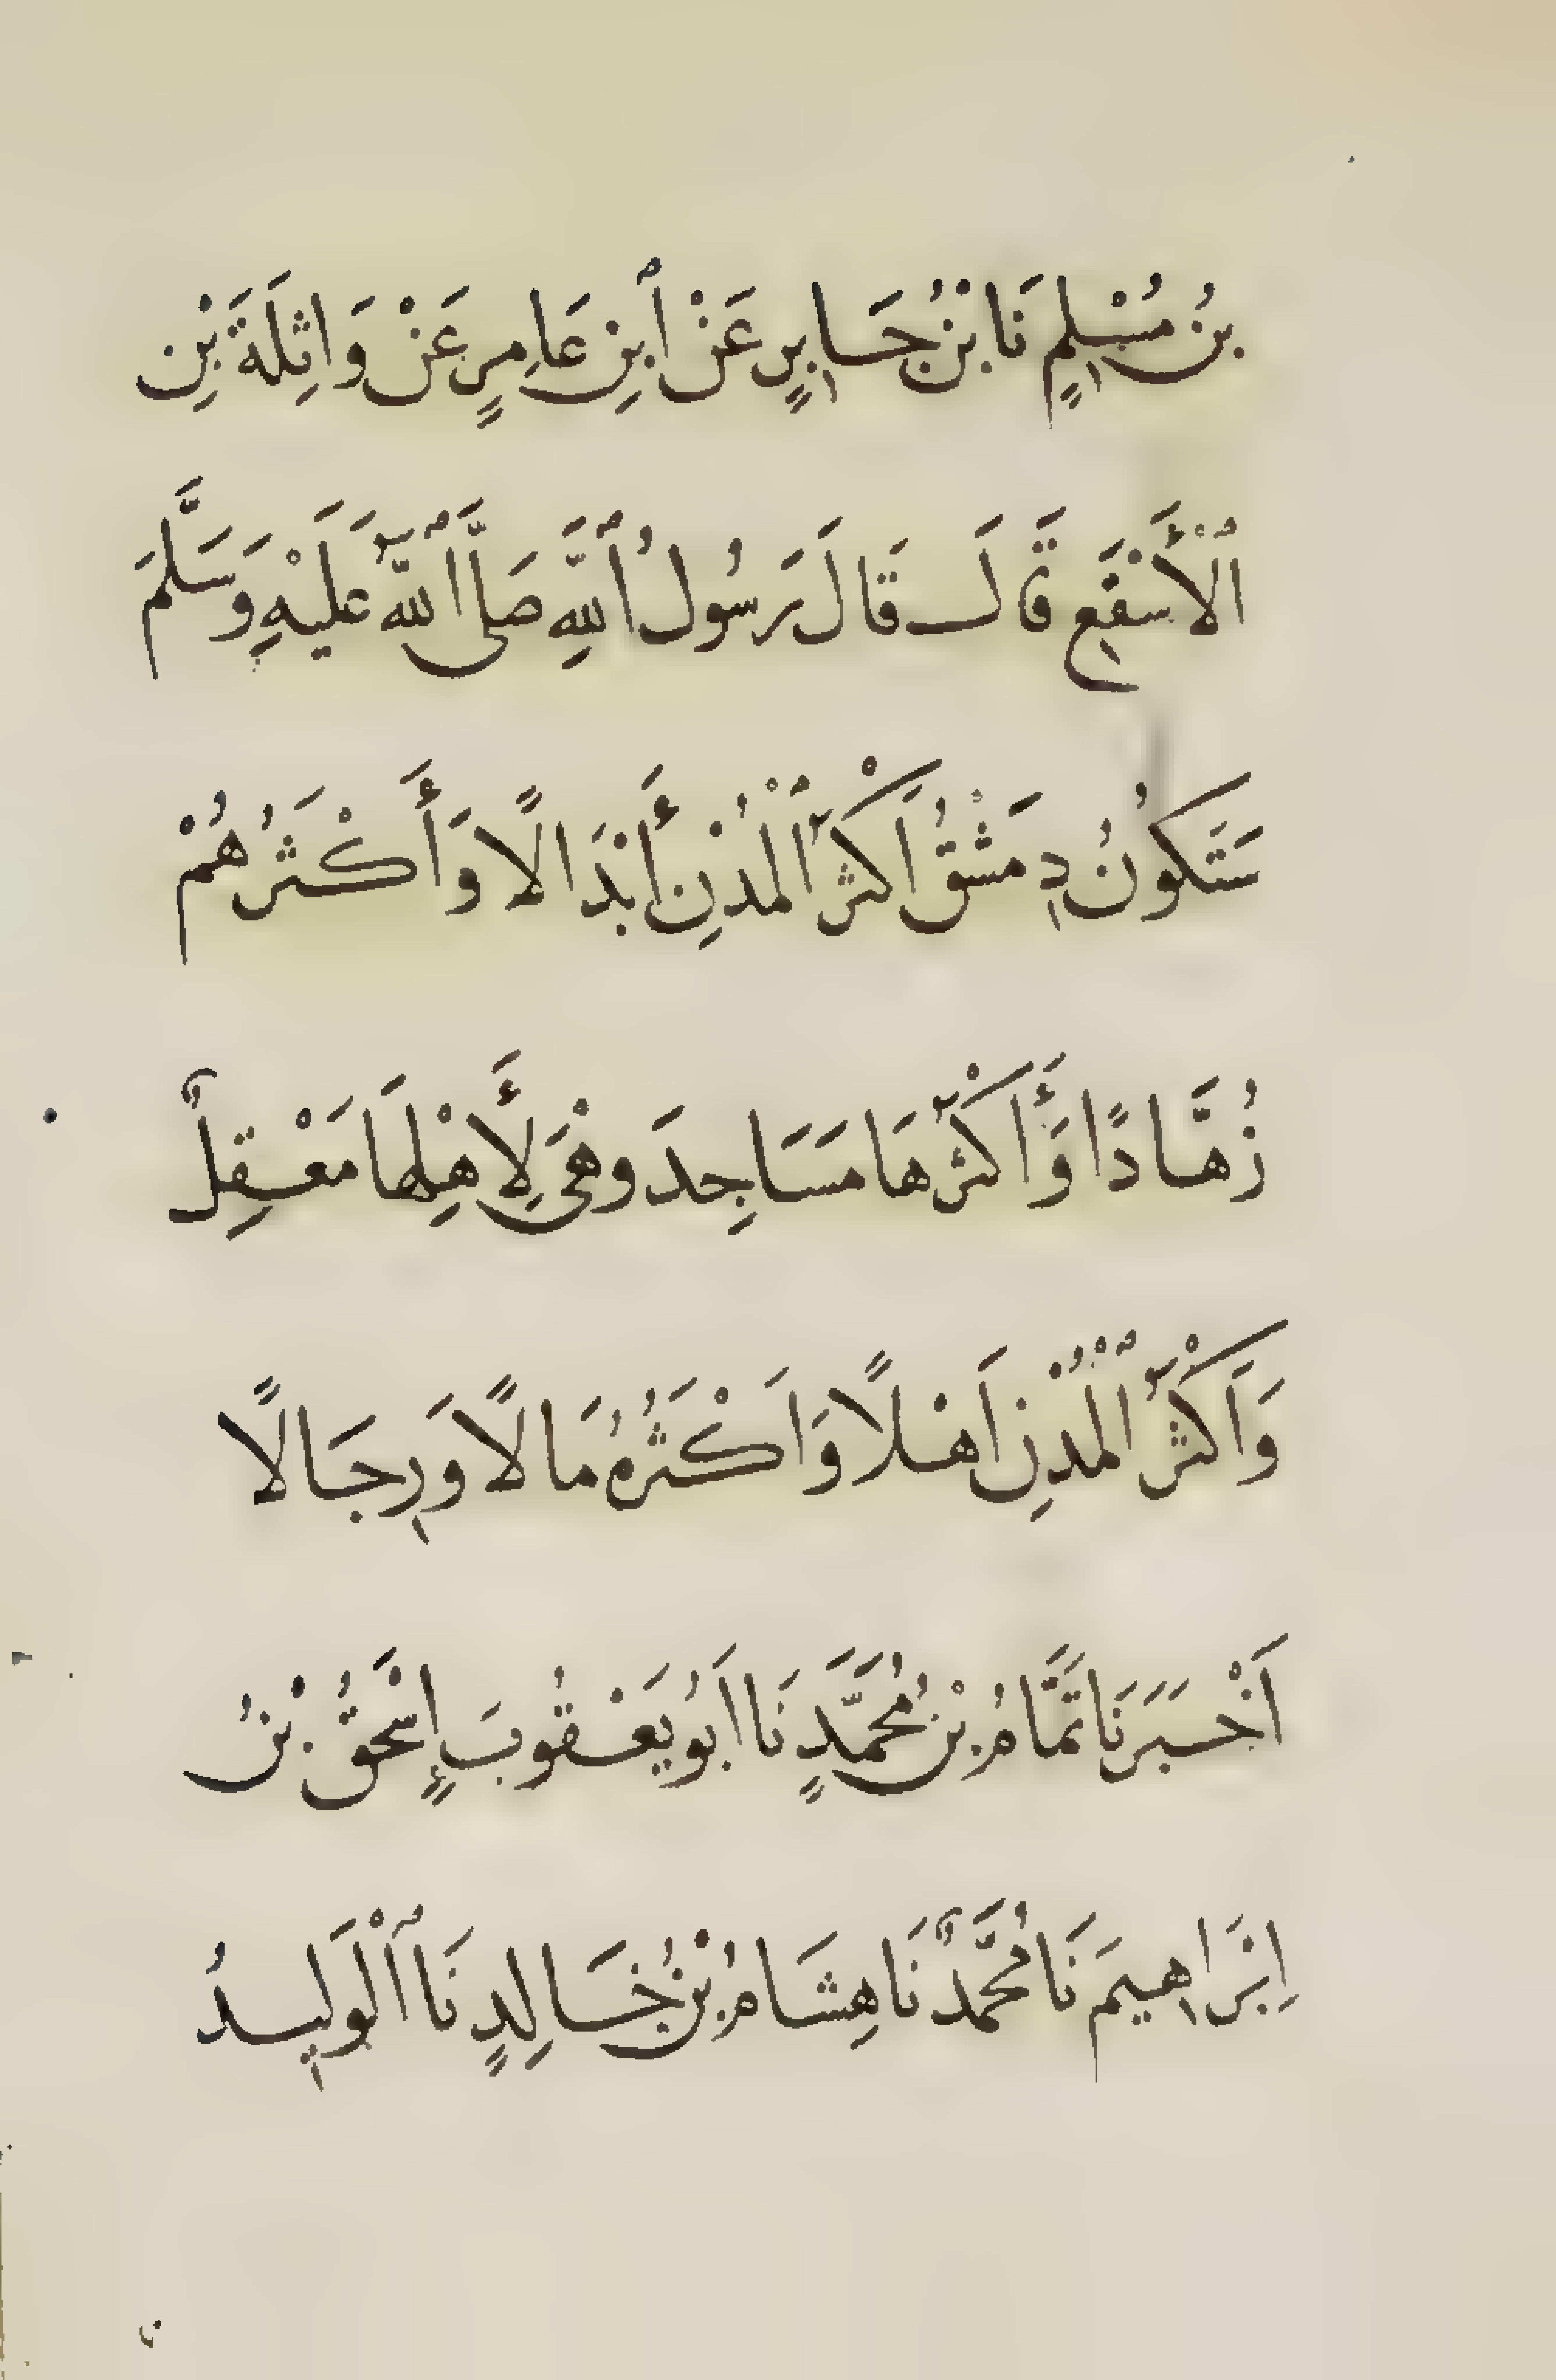 بنُ مُسْلِمٍ نَا بْنُ جَابِرٍ عَنْ ٱبنِ عَامِرٍ عَنْ وَاثِلَةَ بْنِ
ٱلْأَسْقَعِ قَالَ قَالَ رَسُولُ ٱللَّهِ صَلَّى ٱللَّهُ عَلَيْهِ وَسَلَّمَ
سَتَكُونُ دِمَشْقُ اَكْثَرَ ٱلْمُدْنِ أَبْدَالًا وَأَكْثَرُهُمْ
زُهَّادًا وَأَكْثَرُهَا مَسَاجِدَ وَهْيَ لِأَهْلِهَا مَعْقِلٌ
وَاَكْثَرُ ٱلْمُدْنِ اَهْلًا وَاَكْثَرُهُ مَالًا وَرِجَالًا
اَخْبَرَنَا تَمَّامُ بْنُ مُحَمَّدٍ نَا اَبُو يَعْقُوبَ إِسْحَقُ بْنُ
اِبْرَاهِيمَ نَا مُحَمَّدٌ نَا هِشَامُ بْنُ خَالِدٍ نَا ٱلْوَلِيدُ